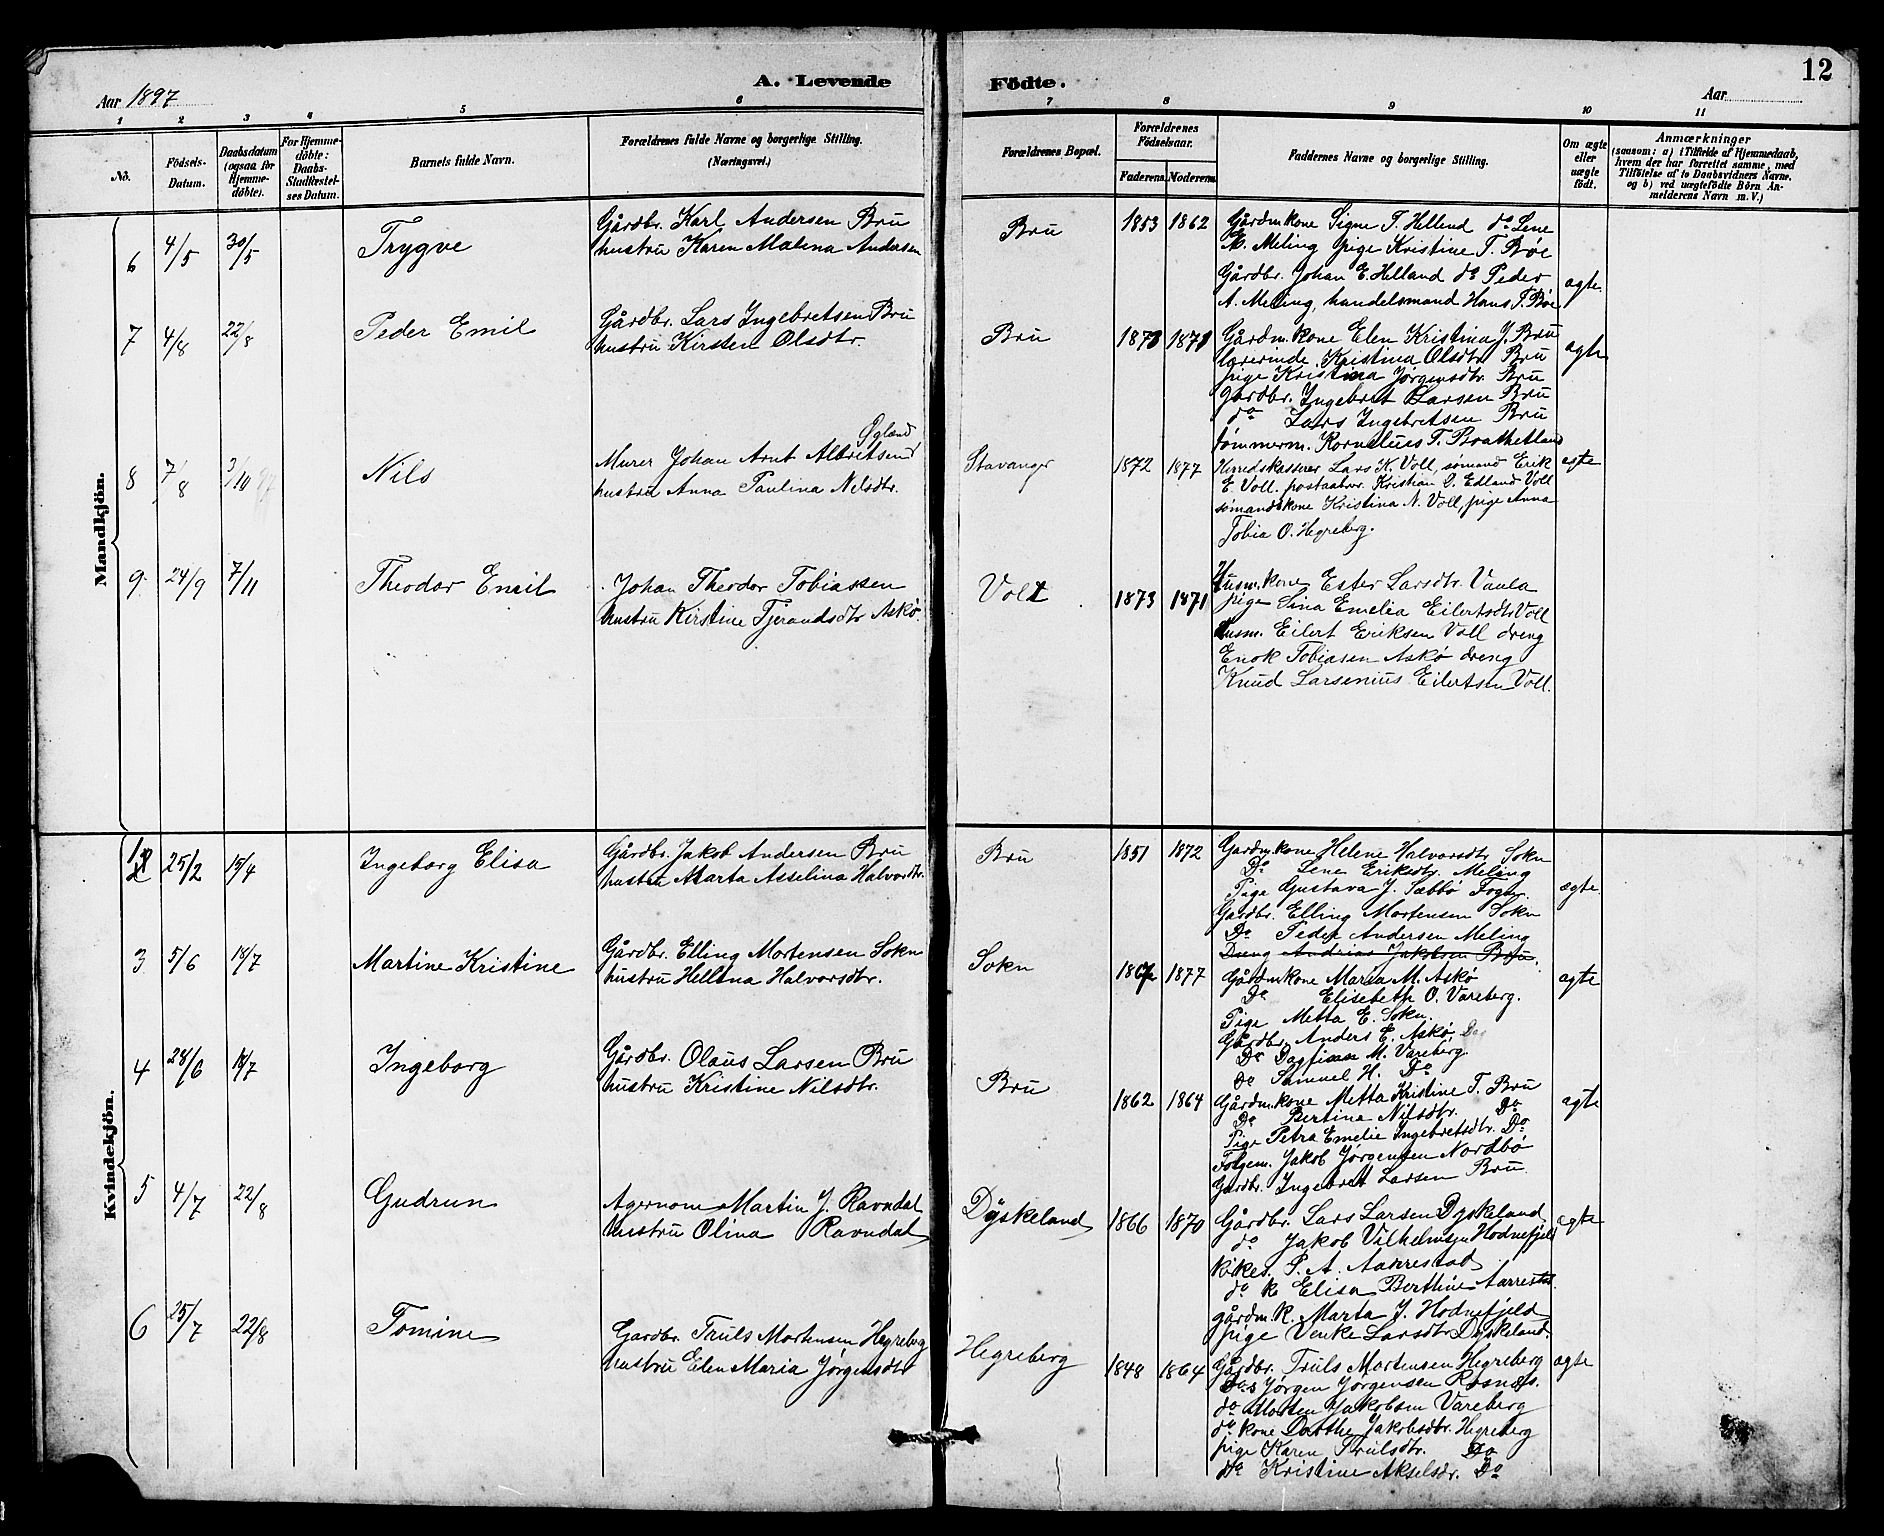 12
A. Levende Födte.
Aar 1897
Aar
1 2 3 4 5 6 7 8 9 10 11
No.
Födsels-Datum.
Daabsdatum (ogsaa for Hjemmedöbte).
For Hjemmedöbte: Daabs-Stadfæstelses Datum.
Barnets fulde Navn.
Forældrenes fulde Navne og borgerlige Stilling. (Næringsvei.)
Forældrenes Bopæl.
Forældrenes Födselsaar.
Faderens Moderens
Faddernes Navne og borgerlige Stilling.
Om ægte eller uægte födt.
Anmærkninger (saasom: a) i Tilfælde af Hjemmedaab, hvem der har forrettet samme, med Tilföielse af to Daabsvidners Navne. og b) ved uægtefödte Börn Anmelderens Navn m. V.)
Mandkjön.
6 4/5 30/5 Trygve
Gårdbr. Karl Andersen Bru
hustru Karen Malena Andersen
Bru 1853 1862
Gårdm.kone Signe T. Helland do Lene
E. Meling pige Kristine T. Bøe
Gårdbr. Johan E. Helland do Peder
A. Meling, handelsmand Hans T. Bøe
ægte
7 4/8 22/8 Peder Emil
Gårdbr. Lars Ingebretsen Bru
hustru Kirsten Olsdtr.
Bru 1873 1871
Gårdm. kone Elen Kristina J. Bru
lærerinde Kristina Olsdtr. Bru
pige Kristina Jørgensdtr. Bru
gårdbr. Ingebret Larsen Bru
do Lars Ingebretsen Bru
tømmerm. Kornelius T. Brathetland
ægte
8 7/8 3/10 Nils
Øgland
Murer Johan Arnt Albretsen
hustru Anna Paulina Nilsdtr.
Stavanger 1872 1877
Herredskasserer Lars K. Voll, sømand Erik
E. Voll. postaabnr. Kristian O. Edland Voll
sømandskone Kristina N. Voll, pige Anna
Tobia O. Hegreberg.
ægte
9 24/9 7/11 Theodor Emil
Johan Theodor Tobiassen
hustru Kirstine Tjerandsdtr Askø
Voll 1873 1871
Husm. kone Ester Larsdtr. Vaula
pige Sina Emelia Eilertsdtr Voll
husm. Eilert Eriksen Voll dreng
Enok Tobiasen Askø dreng
Knud Larsenius Eilertsen Voll.
Kvindekjön.
2 25/2 15/4 Ingeborg Elisa
Gårdbr. Jakob Andersen Bru
hustru Marta Asselina Halvorsdtr.
Bru 1851 1872
Gardm.kone Helene Halvorsdtr Sokn
Do Lene Eriksdtr. Meling
Pige Gustava J. Sæbbø
Gardbr. Elling Mortensen Sokn
Do Peder Andersen Meling
Dreng Andrias Jakobsen Bru
ægte
3 5/6 18/7 Martine Kristine
Gårdbr. Elling Mortensen Sokn
hustru Hellena Halvorsdtr.
Sokn 1877
Gårdmkone Maria M. Askø
Do Elisebeth O. Vareberg.
Pige Metta E. Sokn.
Gårdbr. Anders E. Askø
Do Dagfinn M. Vareberg.
do Samuel H. Do
ægte
4 28/6 18/7 Ingeborg
Gårdbr. Olaus Larsen Bru
hustru Kristine Nilsdtr.
Bru 1862 1864
Gårdm.kone Metta Kristine T. Bru
Do Bertine Nilsdtr. Do
Pige Petra Emelie Ingebretsdtr. Do
Folgem. Jakob Jørgensen Nordbø
Gardbr. Ingebret Larsen Bru
ægte
5 4/7 22/8 Gudrun
Agernom Martin J. Ravndal
hustru Olina Ravndal
Dyskeland 1866 1870
Gårdbr. Lars Larsen Dyskeland
do Jakob Vilhelmsen Hodnefjeld
kikes. P. A. Aarrestad
do k Elisa Berthine Aarrestad
gårdm.k. Marta J. Hodnefjeld
pige Venke Larsdtr. Dyskeland.
ægte
6 25/7 22/8 Tomine
Gardbr. Truls Mortensen Hegreberg
hustru Elen Maria Jørgensdtr
Hegreberg 1848 1864
Gårdbr. Truls Mortensen Hegreberg
Do Jørgen Jørgensen Rosnes.
do Morten Jakobsen Vareberg
do kone Dorthe Jakobsdtr. Hegreberg
pige Karen Trulsdtr. Do
do Kristine Akselsdr. Do
ægte